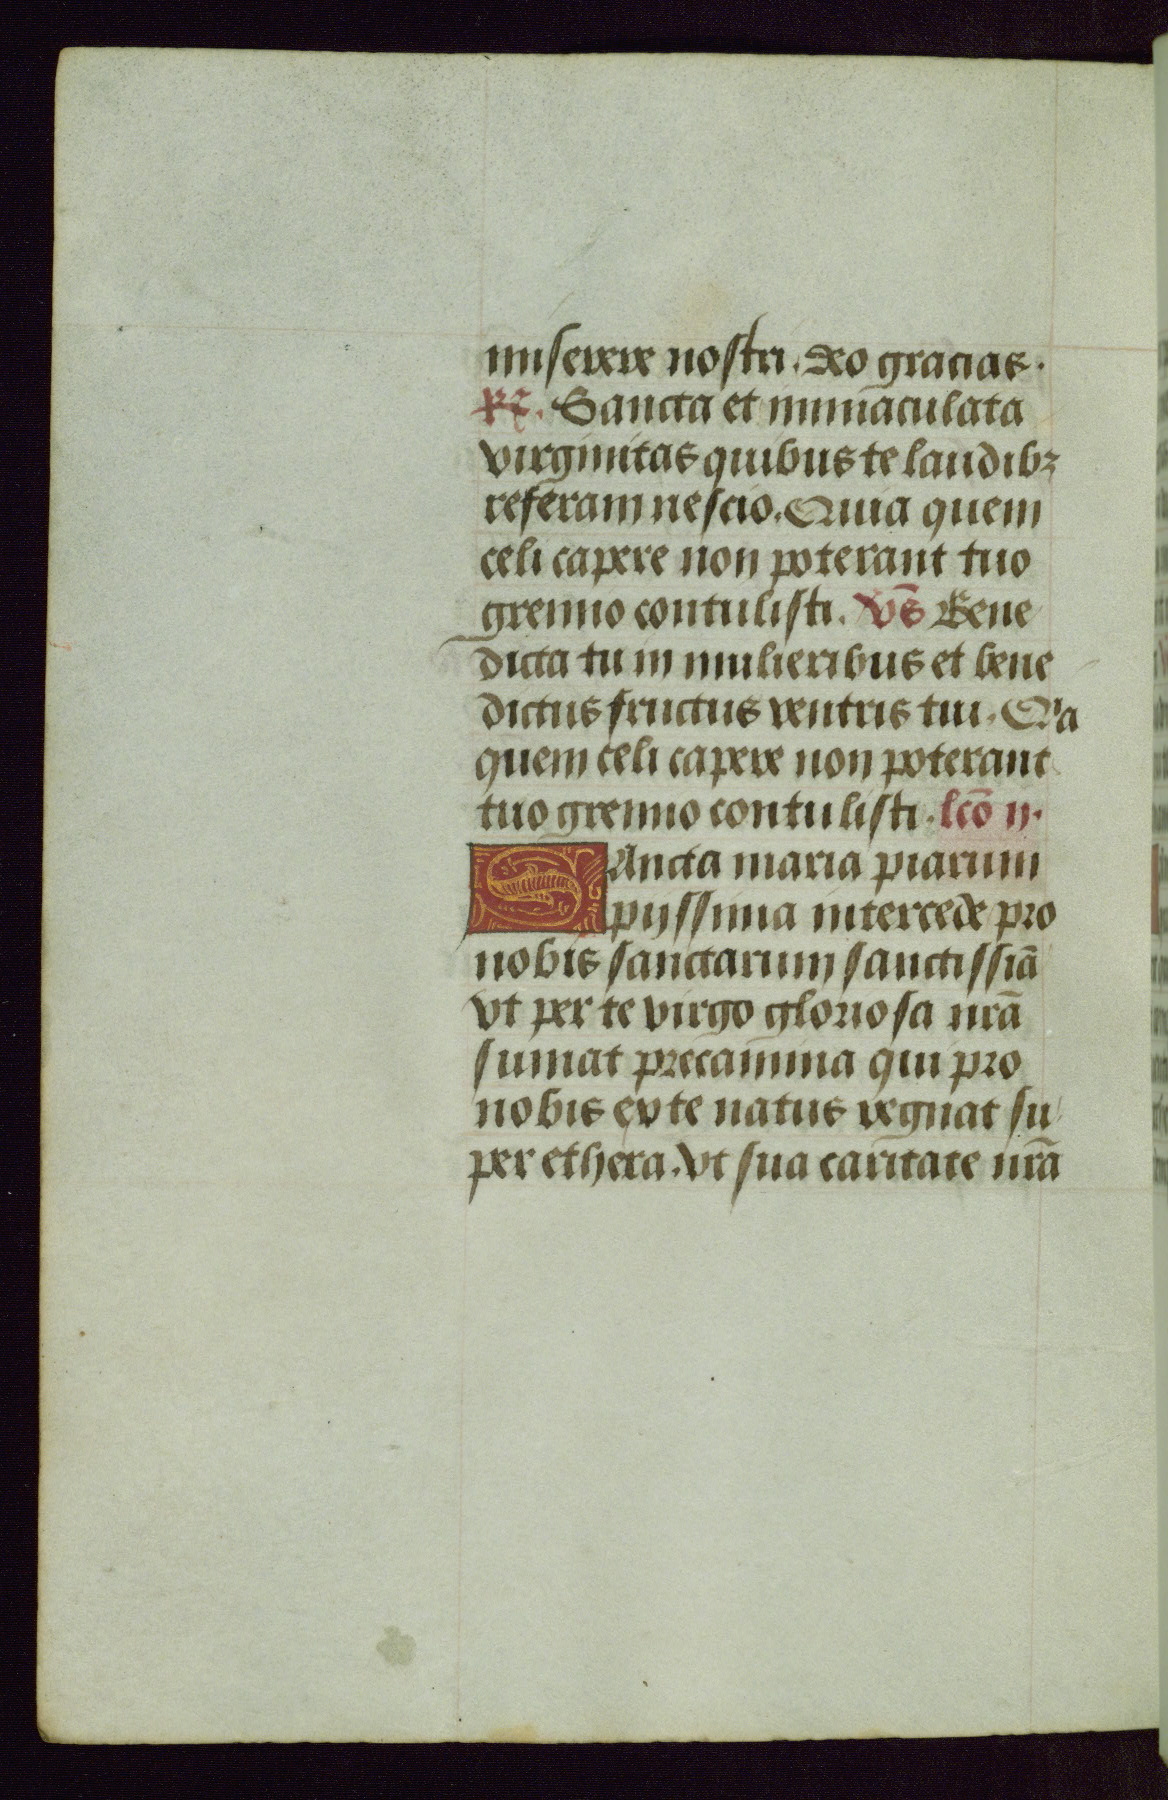 miserere nostri. deo gracias.
R. Sancta et immaculata
virginitas quibus te laudibꝫ
referam nescio. Quia quem
celi capere non poterant tuo
gremio contulisti. Vs̄ Bene
dicta tu in mulieribus et bene
dictus fructus ventris tui. Qͥa
quem celi capere non poterant
tuo gremio contulisti. lc̄o ij.
SAncta maria piarum
pijssima intercede pro
nobis sanctarum sanctissiā
vt per te virgo gloriosa nr̄a
sumat precamina qui pro
nobis ex te natus regnat su
per ethera. Vt sua caritate nr̄a